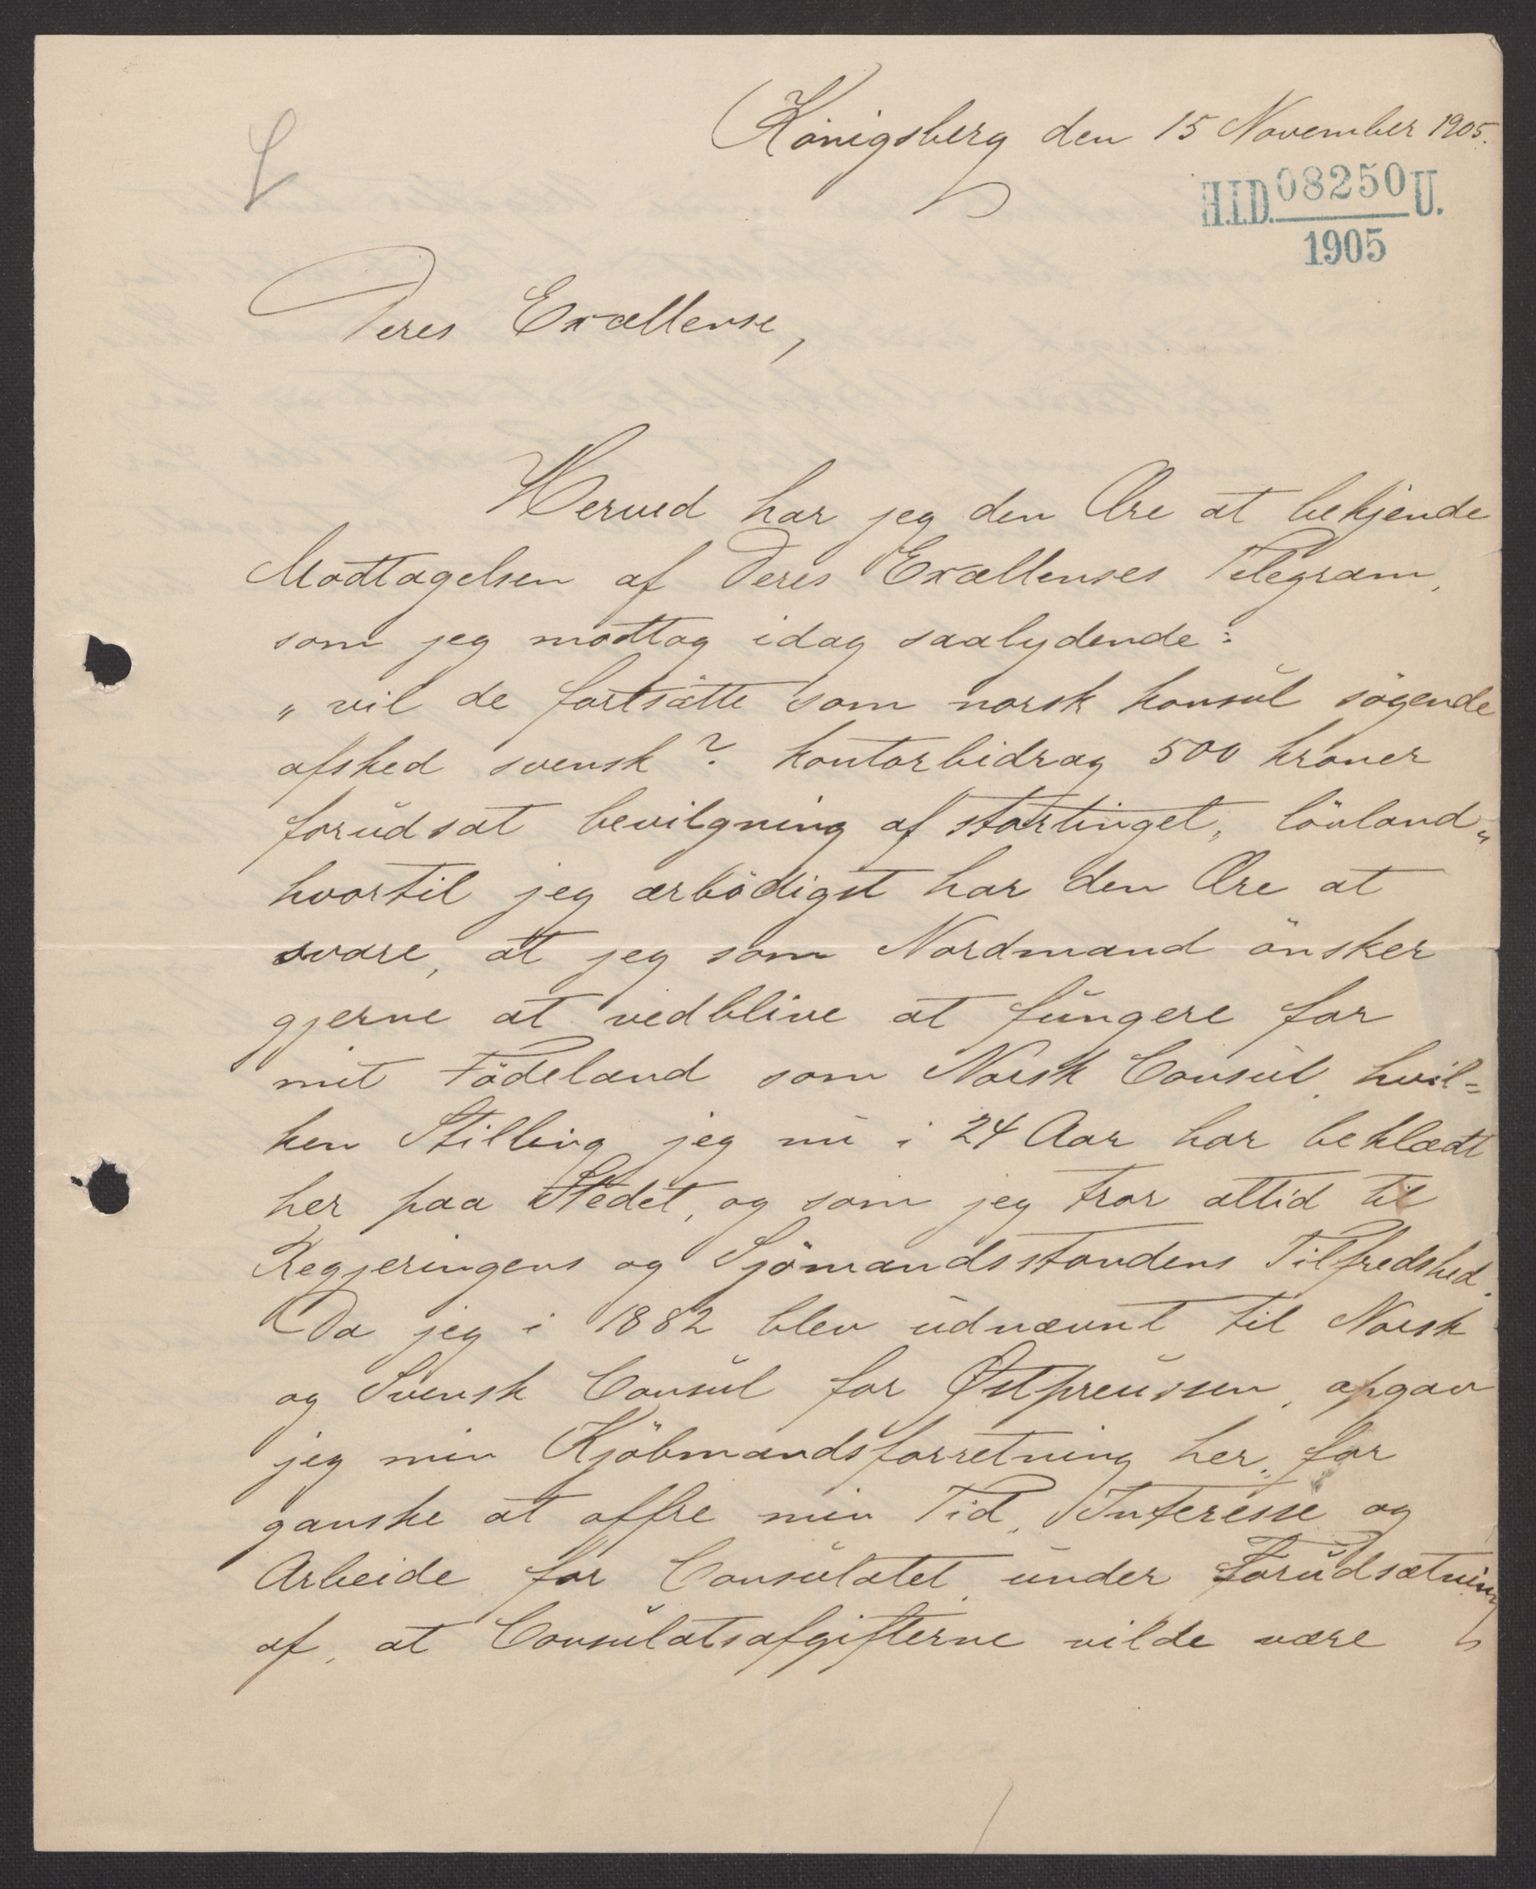 Königsberg den 15 November 1905.
H.I.D. 08250 U.
1905
Deres Exællense,
Herved har jeg den Ære at bekjende
Modtagelsen af Deres Exællenses Telegram,
som jeg modtog idag saalydende:
„vil de fortsätte som norsk konsul sögende
afsked svensk? kontorbidrag 500 kroner
forudsat bevilgning af stortinget, lövland„
hvortil jeg ærbödigst har den Ære at
svare, at jeg som Nordmand önsker
gjerne at vedblive at fungere for
mit Födeland som Norsk Consul, hvil=
ken Stilling jeg nu i 24 Aar har beklædt
her paa Stedet, og som jeg tror altid til
Regjeringens og Sjömandsstandens Tilfredshed.
Da jeg i 1882 blev udnævnt til Norsk
og Svensk Consul for Østpreussen, opgav
jeg min Kjöbmandsforretning her, for
ganske at offre min Tid, Interesse og
Arbeide for Consulatet under Forudsætning
af, at Consulatsafgifterne vilde være